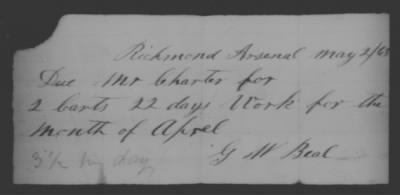 Richmond Arsenal May 2/63
Due Mr Charter for
2 Carts 22 days Work for the
Month of Aprel
G W Beal
3 1/2 per day